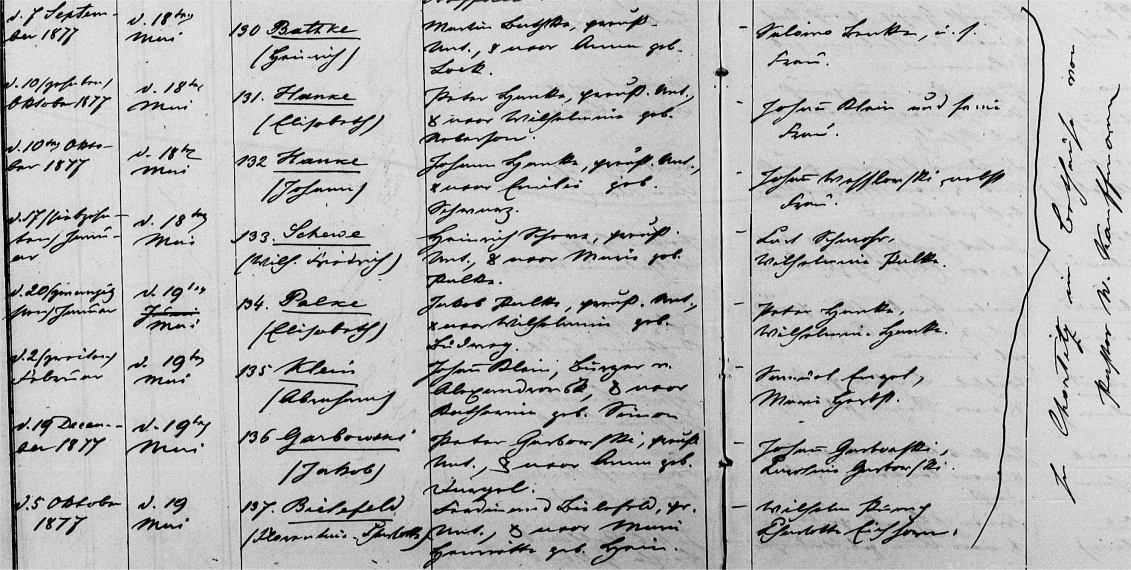 d. 7 Septem-
ber 1877
d. 18ten
Mai
130 Bathke
(Heinrich)
Martin Bathke, preuß.
Unt., & uxor Anna geb.
Salomo u. s.
Frau.
d. 10/zehnten/
Oktober 1877
d. 18ten
Mai
131. Hanke
(Elisabeth)
Peter Hanke, preuß. Unt.,
& uxor Wilhelmine geb.
Johann Klein und seine
Frau.
d. 10ten Okto-
ber 1877
d. 18ten
Mai
132 Hanke
(Johann)
Johann Hanke, preuß. Unt.,
& uxor Emilie geb.
Schwarz.
Johann nebst
Frau.
d. 17/siebzehn-
ten/ Janu-
ar
d. 18ten
Mai
133. Schewe
(Wilh. Friedrich)
Heinrich Schewe, preuß.
Unt., & uxor Maria geb.
Palke.
Wilhelmine Palke.
d. 20/zwanzig
sten/ Januar
d. 19ten
Mai
134. Palke
(Elisabeth)
Jakob Palke, preuß. Unt.,
& uxor Wilhelmine geb.
Peter Hanke,
Wilhelmine Hanke.
d. 2/zweiten/
Februar
d. 19ten
Mai
135 Klein
(Abraham)
Johann Klein, Bürger v.
Alexandrowsk, & uxor
Katharina geb. Simon
Samuel Engel,
Maria Herbst.
d. 19 Decem-
ber 1877
d. 19ten
Mai
136 Garbowski
(Jakob)
Peter Garbowski, preuß.
Unt., & uxor Anna geb.
Johann Garbowski,
Karoline Garbowski.
d. 5 Oktober
1877
d. 19
Mai
137. Bielefeld
(Florentine Charlotte)
Ferdinand Bielefeld, pr.
Unt., & uxor Maria
Henriette geb. Hein.
Wilhelm
Charlotte Eichhorn.
in Chortitz im Bethause von
Pastor N. Kauffmann